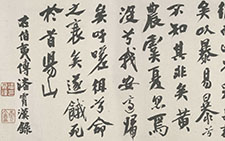 矣以暴易暴兮
不知其非矣黃
農虞夏忽焉
沒兮我安適歸
矣吁嗟徂兮命
之衰矣遂餓死
於首陽山
右伯夷傳